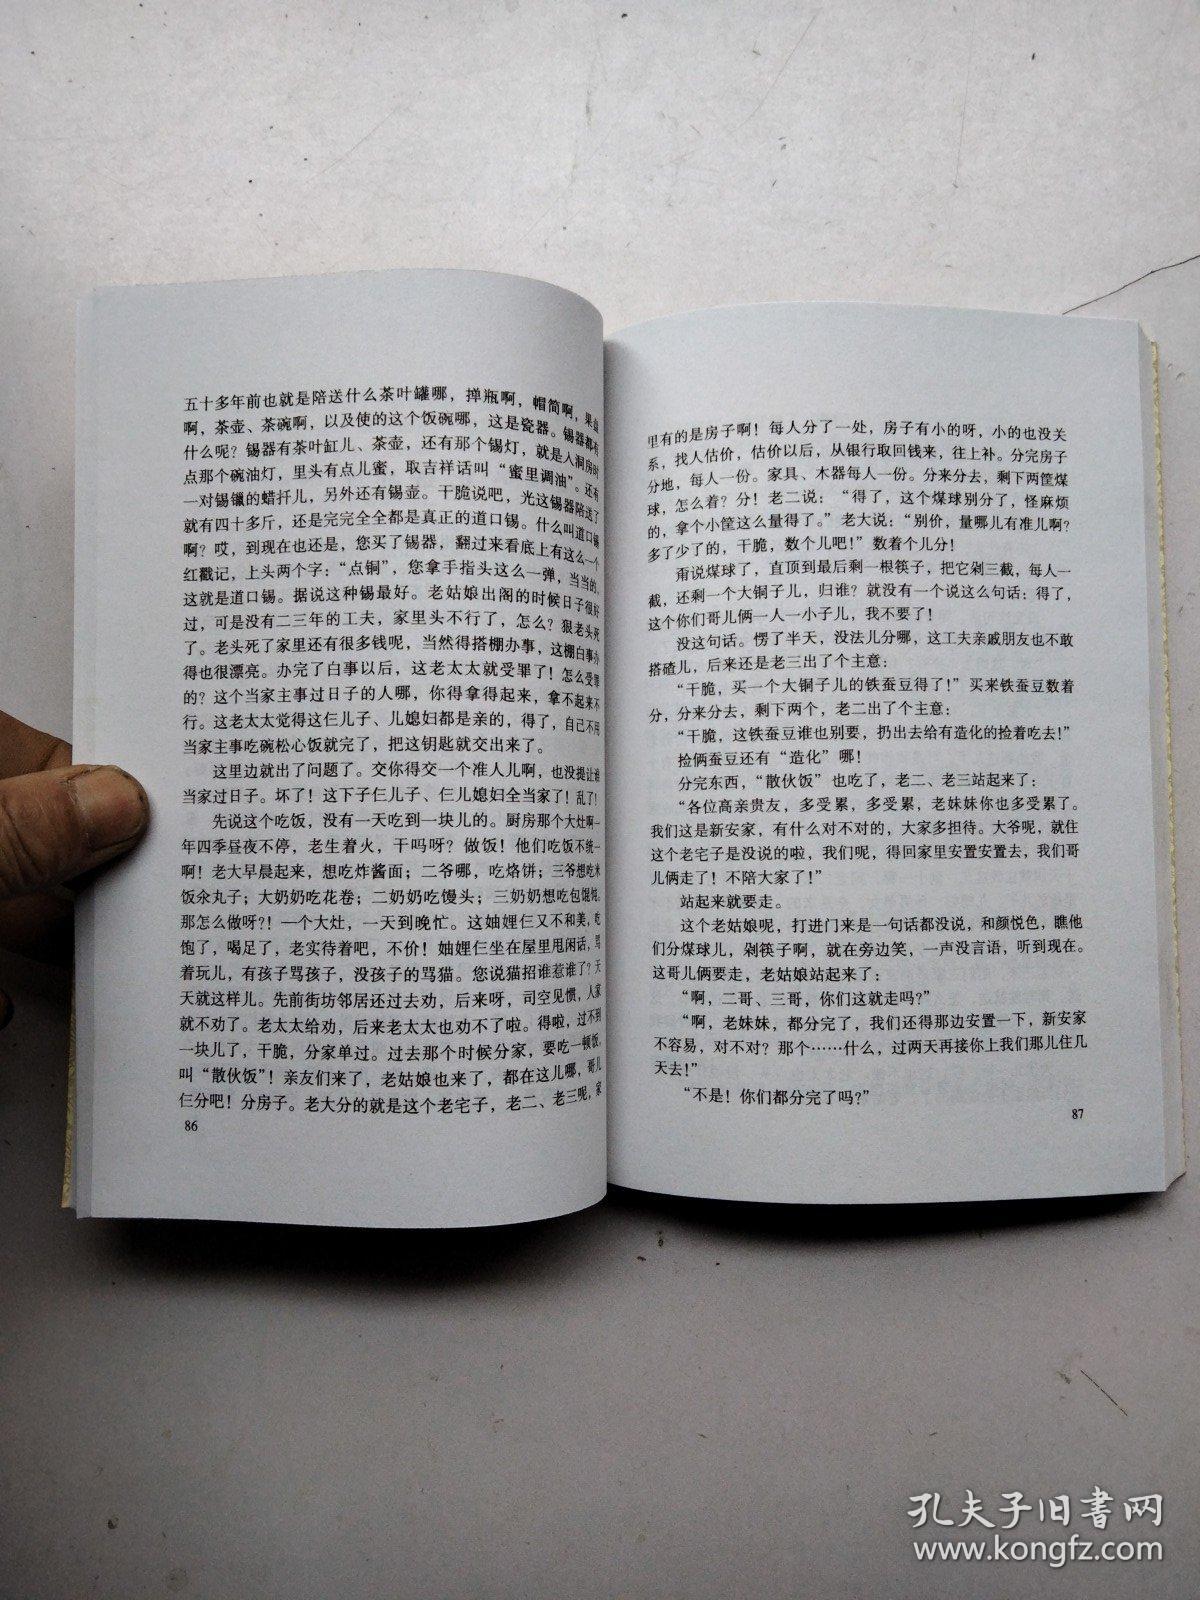 五十多年前也就是陪送什么茶叶罐哪，掸瓶啊，帽筒啊，果盘
啊，茶壶、茶碗啊，以及使的这个饭碗哪，这是瓷器。锡器都有
什么呢？锡器有茶叶缸儿、茶壶，还有那个锡灯，就是入洞房时
点那个碗油灯，里头有点儿蜜，取吉祥话叫“蜜里调油”。还有
一对锡镴的蜡扦儿，另外还有锡壶。干脆说吧，光这锡器陪送了
就有四十多斤，还是完完全全都是真正的道口锡。什么叫道口锡
啊？哎，到现在也还是，您买了锡器，翻过来看底上有这么一个
红戳记，上头两个字：“点铜”，您拿手指头这么一弹，当当的，
这就是道口锡。据说这种锡最好。老姑娘出阁的时候日子很好
过，可是没有二三年的工夫，家里头不行了，怎么？狠老头死
了。老头死了家里还有很多钱呢，当然得搭棚办事，这棚白事办
得也很漂亮。办完了白事以后，这老太太就受罪了！怎么受罪
的？这个当家主事过日子的人哪，你得拿得起来，拿不起来不
行。这老太太觉得这仨儿子、儿媳妇都是亲的，得了，自己不用
当家主事吃碗松心饭就完了，把这钥匙就交出来了。
这里边就出了问题了。交你得交一个准人儿啊，也没提让谁
当家过日子。坏了！这下子仨儿子、仨儿媳妇全当家了！乱了！
先说这个吃饭，没有一天吃到一块儿的。厨房那个大灶啊一
年四季昼夜不停，老生着火，干吗呀？做饭！他们吃饭不统一
啊！老大早晨起来，想吃炸酱面；二爷哪，吃烙饼；三爷想吃米
饭汆丸子；大奶奶吃花卷；二奶奶吃馒头；三奶奶想吃包馄饨。
那怎么做呀？！一个大灶，一天到晚忙。这妯娌仨又不和美，吃
饱了，喝足了，老实待着吧，不价！妯娌仨坐在屋里甩闲话，骂
着玩儿，有孩子骂孩子，没孩子的骂猫。您说猫招谁惹谁了？天
天就这样儿。先前街坊邻居还过去劝，后来呀，司空见惯，人家
就不劝了。老太太给劝，后来老太太也劝不了啦。得啦，过不到
一块儿了，干脆，分家单过。过去那个时候分家，要吃一顿饭，
叫“散伙饭”！亲友们来了，老姑娘也来了，都在这儿哪，哥儿
仨分吧！分房子。老大分的就是这个老宅子，老二、老三呢，家
86
里有的是房子啊！每人分了一处，房子有小的呀，小的也没关
系，找人估价，估价以后，从银行取回钱来，往上补。分完房子
分地，每人一份。家具、木器每人一份。分来分去，剩下两筐煤
球，怎么着？分！老二说：“得了，这个煤球别分了，怪麻烦
的，拿个小筐这么量得了。”老大说：“别价，量哪儿有准儿啊？
多了少了的，干脆，数个儿吧！”数着个儿分！
甭说煤球了，直顶到最后剩一根筷子，把它剁三截，每人一
截，还剩一个大铜子儿，归谁？就没有一个说这么句话：得了，
这个你们哥儿俩一人一小子儿，我不要了！
没这句话。愣了半天，没法儿分哪，这工夫亲戚朋友也不敢
搭碴儿，后来还是老三出了个主意：
“干脆，买一个大铜子儿的铁蚕豆得了！”买来铁蚕豆数着
分，分来分去，剩下两个，老二出了个主意：
“干脆，这铁蚕豆谁也别要，扔出去给有造化的捡着吃去！”
捡俩蚕豆还有“造化”哪！
分完东西，“散伙饭”也吃了，老二、老三站起来了：
“各位高亲贵友，多受累，多受累，老妹妹你也多受累了。
我们这是新安家，有什么对不对的，大家多担待。大爷呢，就住
这个老宅子是没说的啦，我们呢，得回家里安置安置去，我们哥
儿俩走了！不陪大家了！”
站起来就要走。
这个老姑娘呢，打进门来是一句话都没说，和颜悦色，瞧他
们分煤球儿，剁筷子啊，就在旁边笑，一声没言语，听到现在。
这哥儿俩要走，老姑娘站起来了：
“啊，二哥、三哥，你们这就走吗？”
“啊，老妹妹，都分完了，我们还得那边安置一下，新安家
不容易，对不对？那个……什么，过两天再接你上我们那儿住几
天去！”
“不是！你们都分完了吗？”
87
孔夫子旧书网
www.kongfz.com